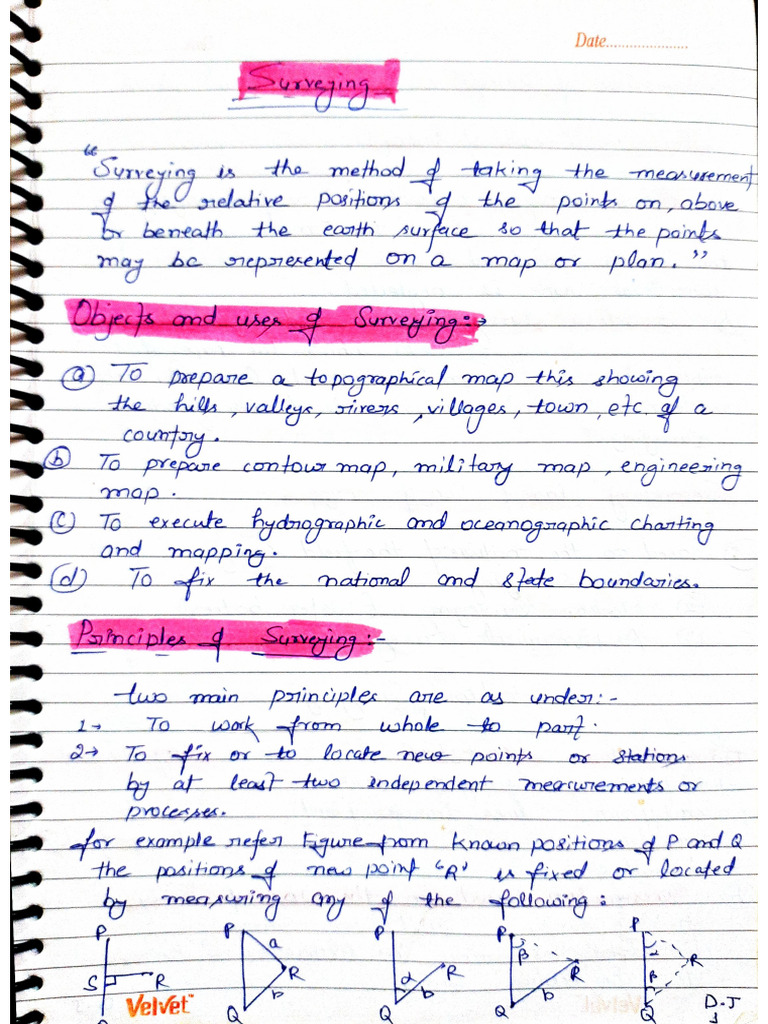 Date.....................
Surveying
"Surveying is the method of taking the measurement
of the relative positions of the points on, above
or beneath the earth surface so that the points
may be represented on a map or plan."
Objects and uses of Surveying:→
(a) To prepare a topographical map this showing
the hills, valleys, rivers, villages, town, etc. of a
country.
(b) To prepare contour map, military map, engineering
map.
(c) To execute hydrographic and oceanographic charting
and mapping.
(d) To fix the national and state boundaries.
Principles of Surveying:-
two main principles are as under:-
1→ To work from whole to part.
2→ To fix or to locate new points or stations
by at least two independent measurements or
processes.
for example refer figure from known positions of P and Q
the positions of new point 'R' is fixed or located
by measuring any of the following:
P P P P P
a β α
S R R α R R β R
b b b
Q Q Q Q Q
Velvet D.J